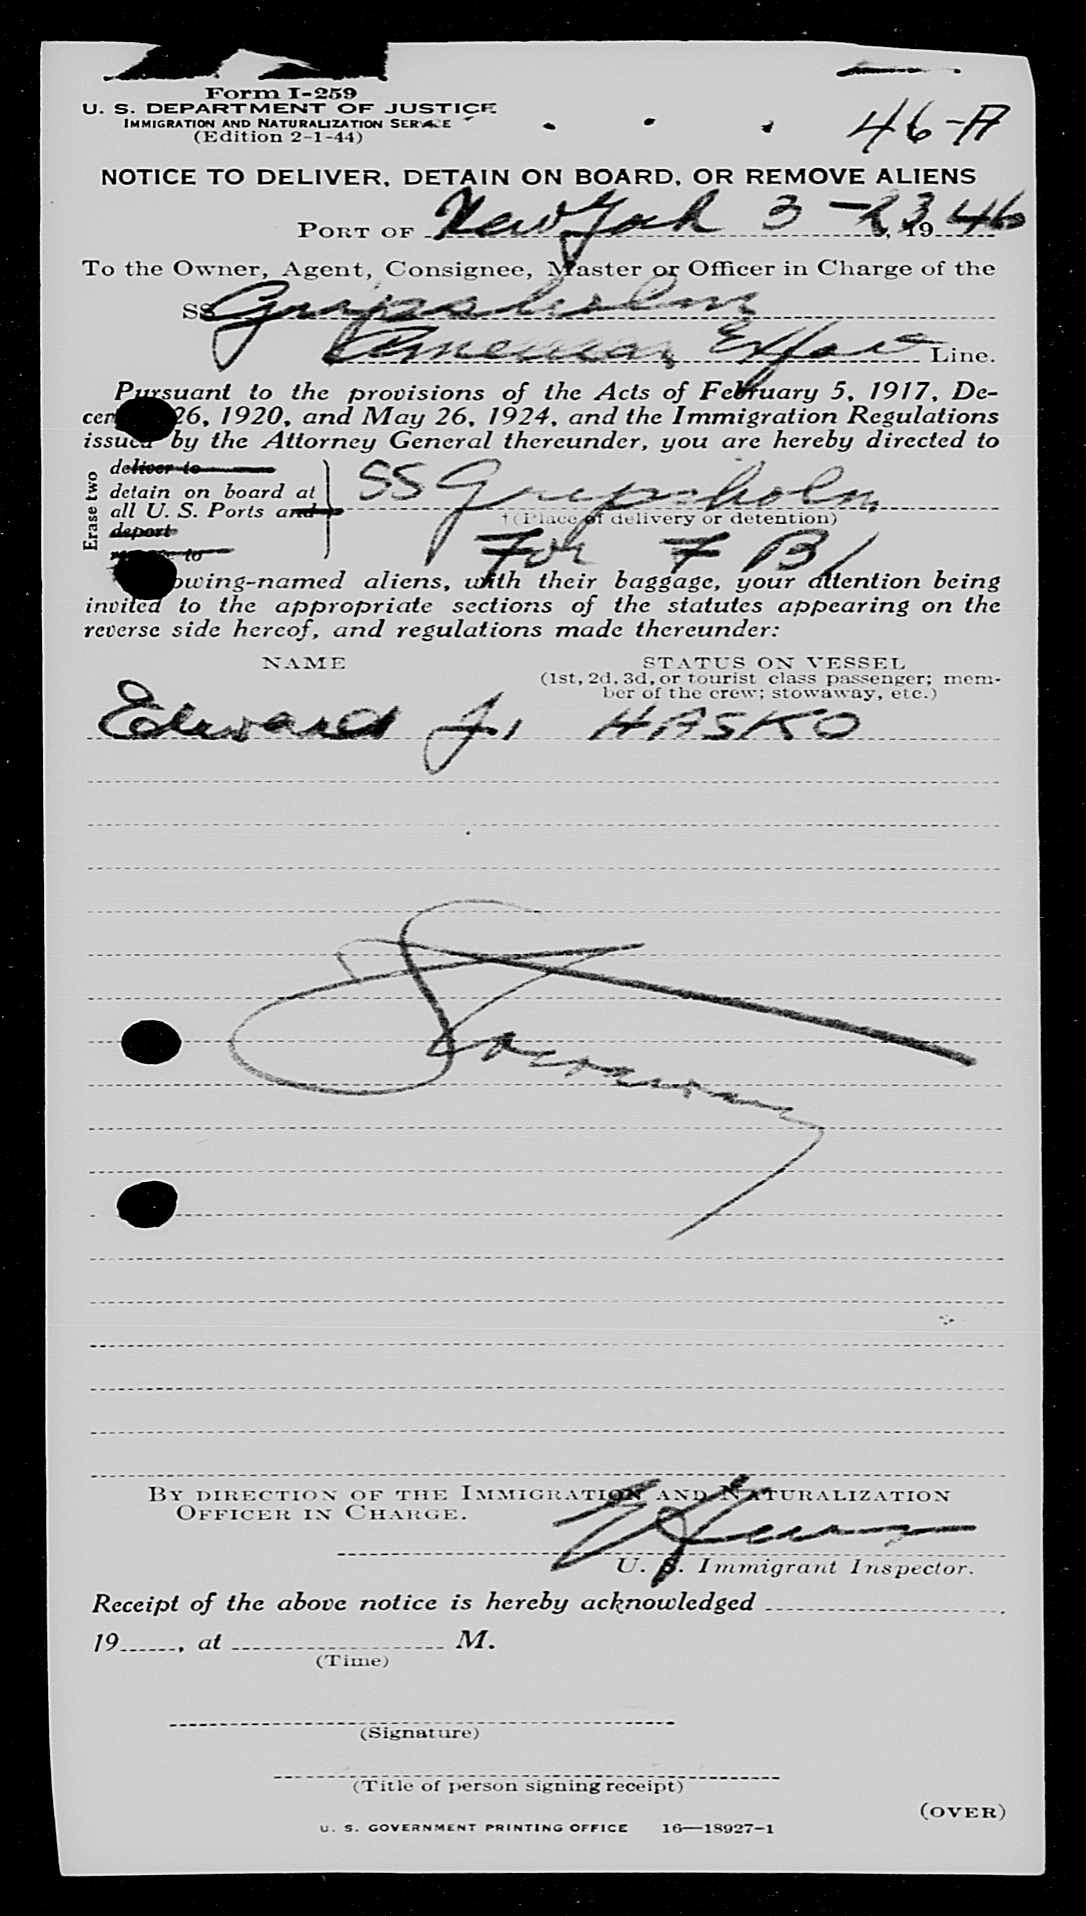 Form I-259
U. S. DEPARTMENT OF JUSTICE
IMMIGRATION AND NATURALIZATION SERVICE
(Edition 2-1-44)
46-A
NOTICE TO DELIVER, DETAIN ON BOARD, OR REMOVE ALIENS
PORT OF New York 3-23, 1946
To the Owner, Agent, Consignee, Master or Officer in Charge of the
SS Gripsholm
American Export Line.
Pursuant to the provisions of the Acts of February 5, 1917, De-
cem 26, 1920, and May 26, 1924, and the Immigration Regulations
issued by the Attorney General thereunder, you are hereby directed to
Erase two
deliver to
detain on board at
all U. S. Ports and
deport
to
SS Gripsholm
†(Place of delivery or detention)
For F B I
owing-named aliens, with their baggage, your attention being
invited to the appropriate sections of the statutes appearing on the
reverse side hereof, and regulations made thereunder:
NAME STATUS ON VESSEL
(1st, 2d, 3d, or tourist class passenger; mem-
ber of the crew; stowaway, etc.)
Edward J. HASKO
Stowaway
BY DIRECTION OF THE IMMIGRATION AND NATURALIZATION
OFFICER IN CHARGE.
U. S. Immigrant Inspector.
Receipt of the above notice is hereby acknowledged
19 , at M.
(Time)
(Signature)
(Title of person signing receipt)
(OVER)
U. S. GOVERNMENT PRINTING OFFICE 16—18927-1